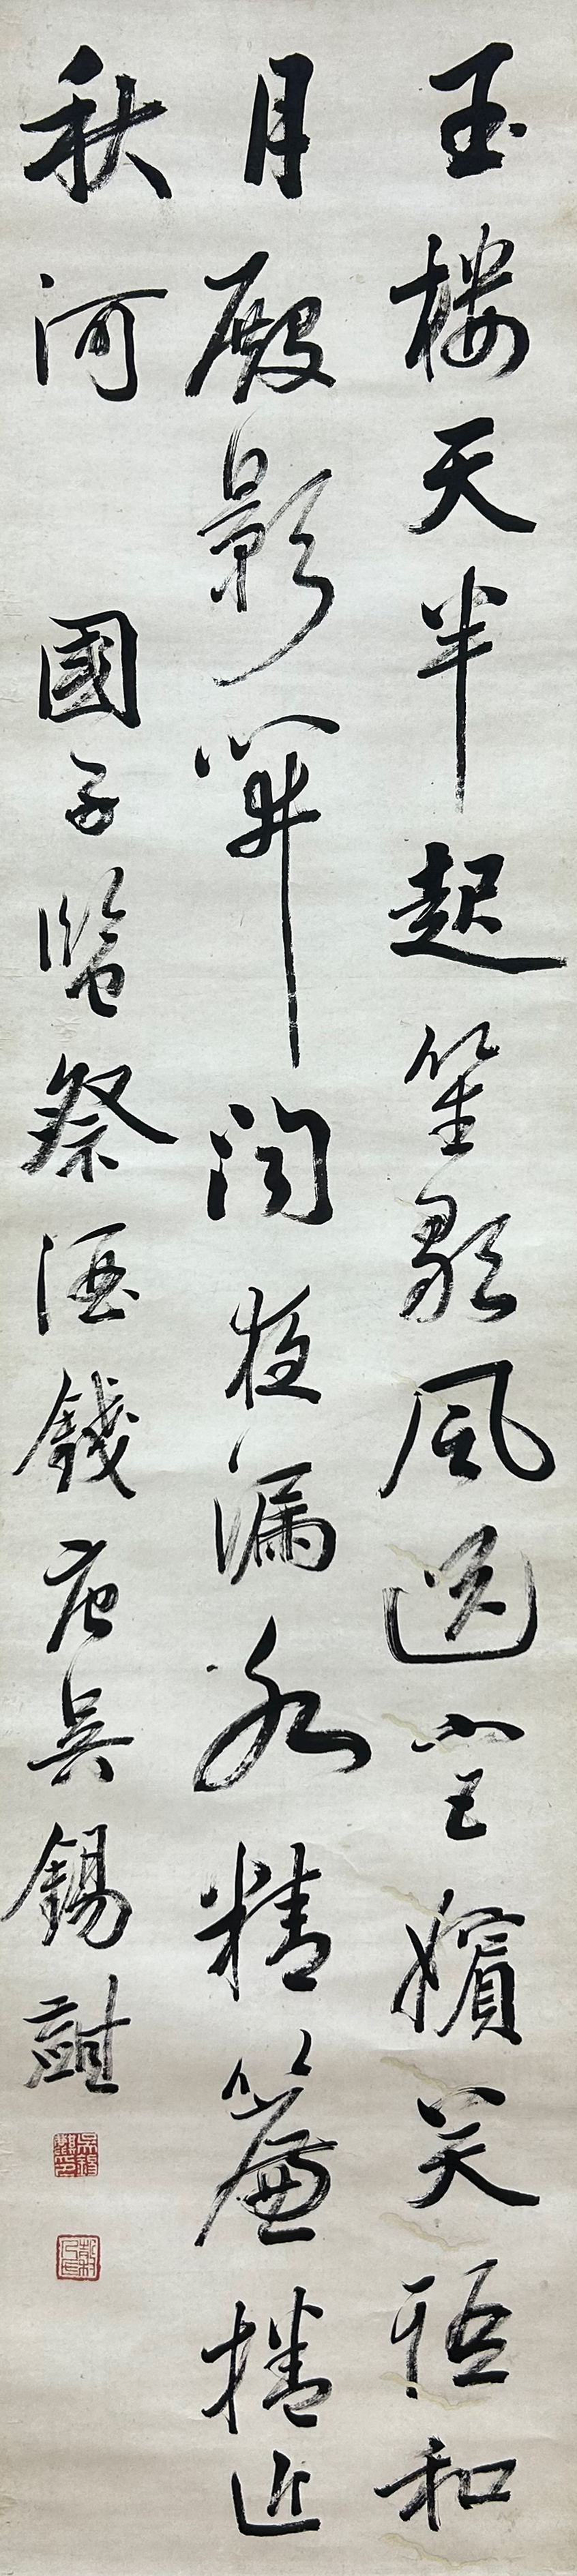 玉樓天半起笙歌風送宮嬪笑語和
月殿影開聞夜漏水精簾捲近
秋河
國子監祭酒錢唐吳錫麒
吳錫麒印